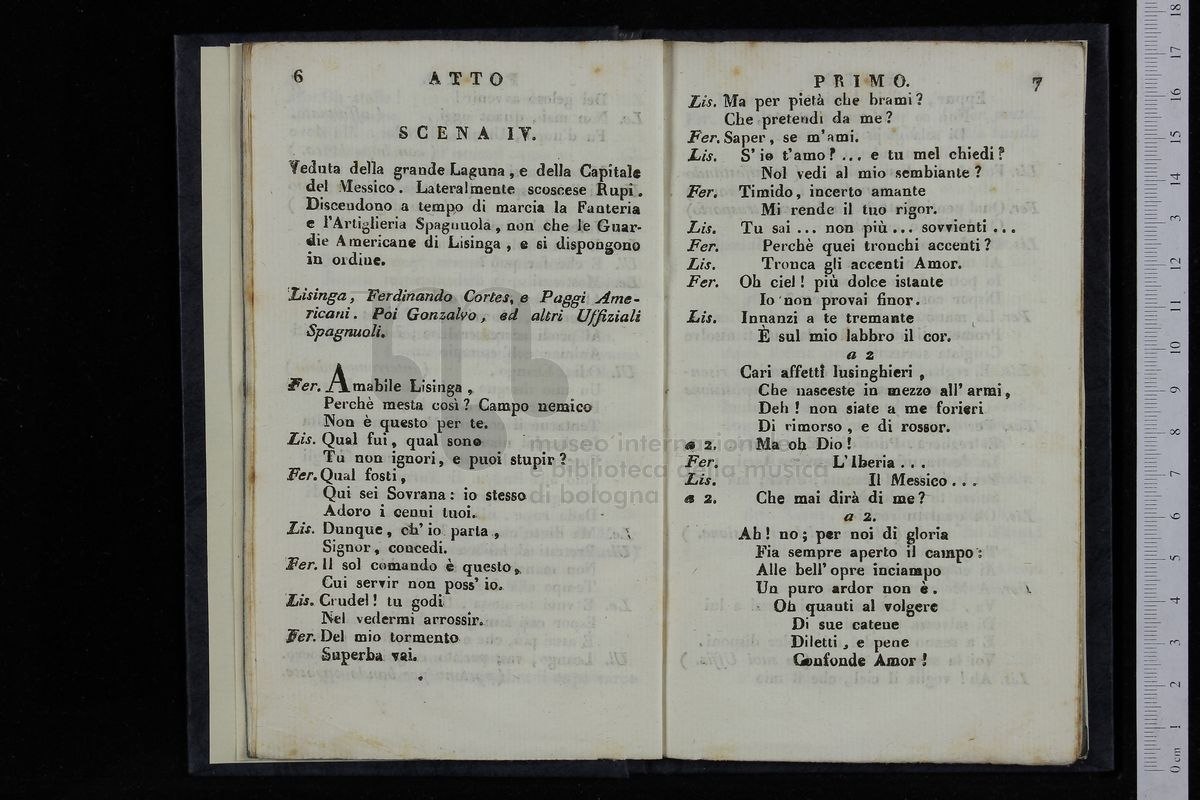 6 ATTO
SCENA IV.
Veduta della grande Laguna, e della Capitale
del Messico. Lateralmente scoscese Rupi.
Discendono a tempo di marcia la Fanteria
e l'Artiglieria Spagnuola, non che le Guar-
die Americane di Lisinga, e si dispongono
in ordine.
Lisinga, Ferdinando Cortes, e Paggi Ame-
ricani. Poi Gonzalvo, ed altri Uffiziali
Spagnuoli.
Fer. Amabile Lisinga,
Perchè mesta così? Campo nemico
Non è questo per te.
Lis. Qual fui, qual sono
Tu non ignori, e puoi stupir?
Fer. Qual fosti,
Qui sei Sovrana: io stesso
Adoro i cenni tuoi.
Lis. Dunque, ch' io parta,
Signor, concedi.
Fer. Il sol comando è questo,
Cui servir non poss' io.
Lis. Crudel! tu godi
Nel vedermi arrossir.
Fer. Del mio tormento
Superba vai.
PRIMO. 7
Lis. Ma per pietà che brami?
Che pretendi da me?
Fer. Saper, se m'ami.
Lis. S' io t'amo? ... e tu mel chiedi?
Nol vedi al mio sembiante?
Fer. Timido, incerto amante
Mi rende il tuo rigor.
Lis. Tu sai ... non più ... sovvienti ...
Fer. Perchè quei tronchi accenti?
Lis. Tronca gli accenti Amor.
Fer. Oh ciel! più dolce istante
Io non provai finor.
Lis. Innanzi a te tremante
È sul mio labbro il cor.
a 2
Cari affetti lusinghieri,
Che nasceste in mezzo all' armi,
Deh! non siate a me forieri
Di rimorso, e di rossor.
a 2. Ma oh Dio!
Fer. L' Iberia ...
Lis. Il Messico ...
a 2. Che mai dirà di me?
a 2.
Ah! no; per noi di gloria
Fia sempre aperto il campo:
Alle bell' opre inciampo
Un puro ardor non è.
Oh quanti al volgere
Di sue catene
Diletti, e pene
Confonde Amor!
museo internazionale
e biblioteca della musica
di bologna
0 cm 1 2 3 4 5 6 7 8 9 10 11 12 13 14 15 16 17 18